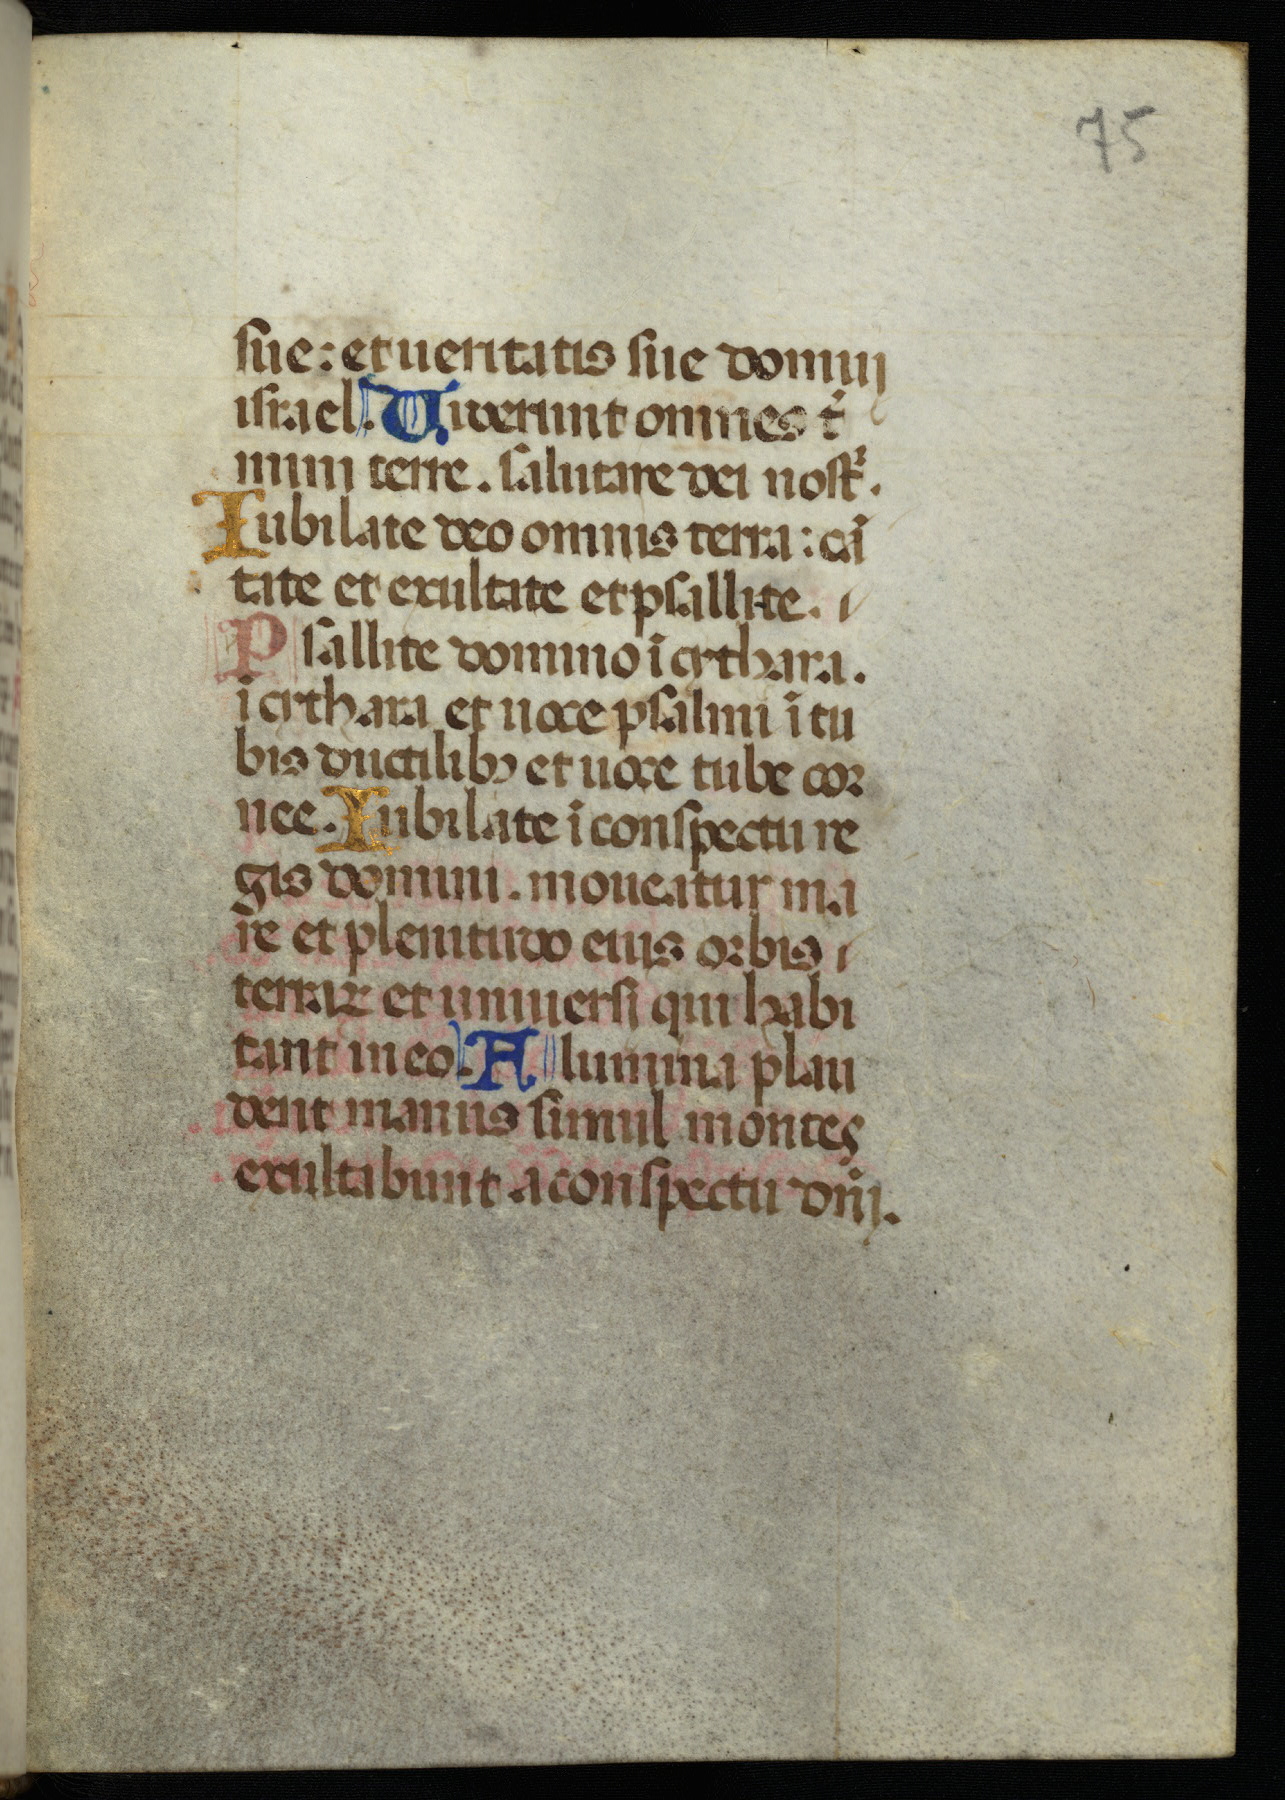 75
sue: et ueritatis sue domui
israel. Uiderunt omnes t̄
mini terre. salutare dei nostr̉.
Iubilate deo omnis terra: cā
tate et exultate et psallite.
Psallite domino ī cythara.
ī cythara et uoce psalmi ī tu
bis ductilibꝫ et uoce tube cor
nee. Iubilate ī conspectu re
gis domini. moueatur ma
re et plenitudo eius orbis
terraꝝ et uniuersi qui habi
tant in eo. Flumina plau
dent manus simul montes
exultabunt a conspectu dñi.